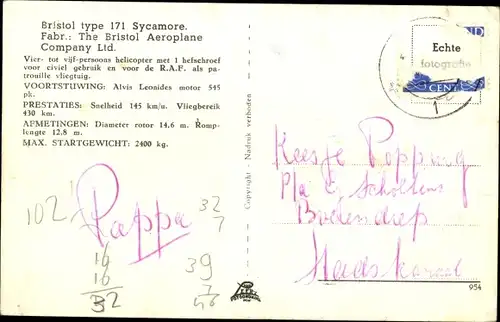 Bristol type 171 Sycamore.
Fabr.: The Bristol Aeroplane
Company Ltd.
Vier- tot vijf-persoons helicopter met 1 hefschroef
voor civiel gebruik en voor de R.A.F. als pa-
trouille vliegtuig.
VOORTSTUWING: Alvis Leonides motor 545
pk.
PRESTATIES: Snelheid 145 km/u. Vliegbereik
430 km.
AFMETINGEN: Diameter rotor 14.6 m. Romp-
lengte 12.8 m.
MAX. STARTGEWICHT: 2400 kg.
102
Pappa
16
16
32
32
7
39
7
46
Copyright - Nadruk verboden
Echte
fotografie
CENT
1
Keesje Popping
P/a
Scholtens
Boelendiep
Stadskanaal
954